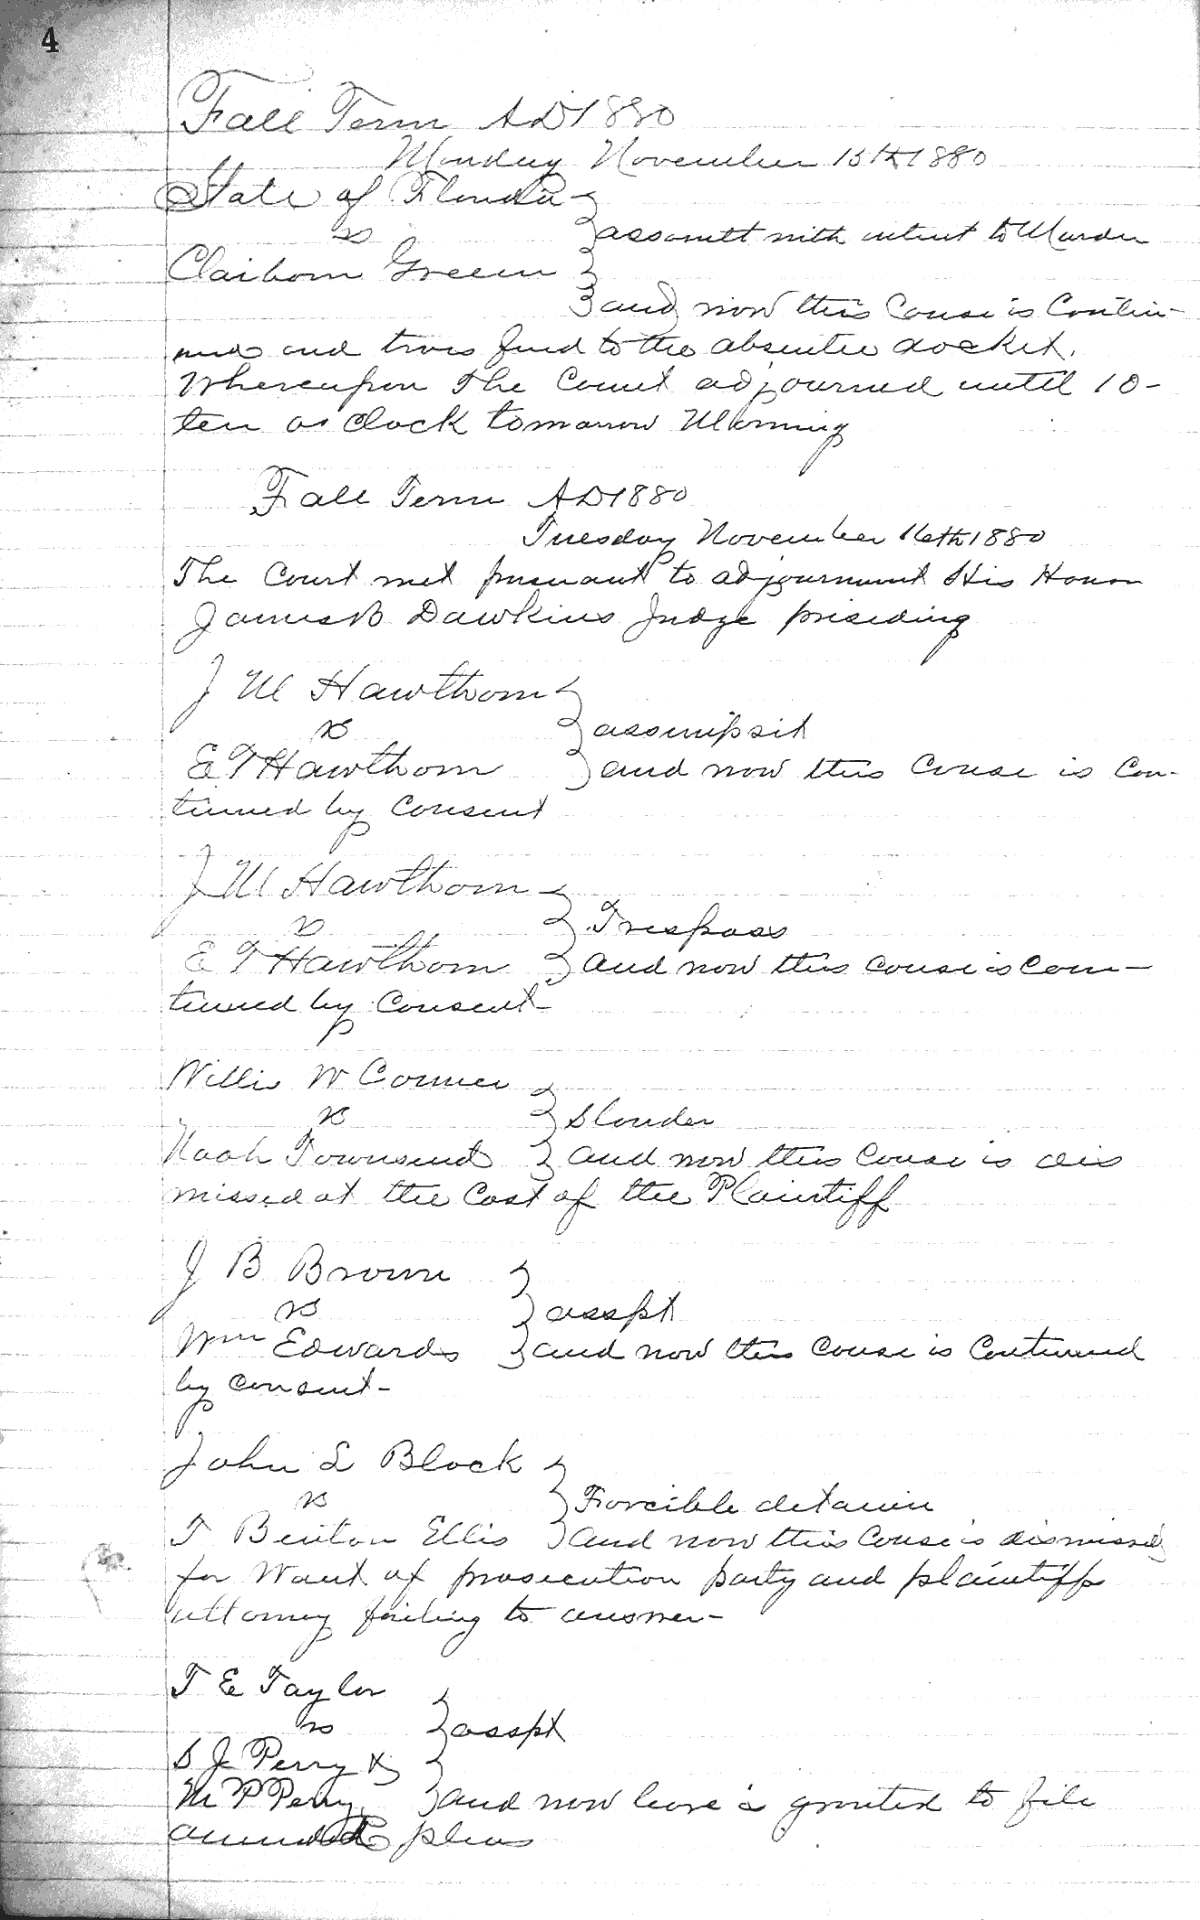 4
Fall Term AD 1880
Monday November 15th 1880
State of Florida
vs
assault with intent to Murder
Claiborn Green
and now this Cause is Contin-
ued and trans fered to the absentee docket.
Whereupon The Court adjourned until 10-
ten oclock tomarrow Morning
Fall Term AD 1880
Tuesday November 16th 1880
The Court met pursuant to adjournment His Honor
James B Dawkins Judge presiding
J M Hawthorn
vs
assumpsit
E T Hawthorn and now this Cause is Con-
tinued by Consent
J M Hawthorn
vs
Trespass
E T Hawthorn and now this Cause is Con-
tinued by Consent-
Willis W Conner
vs
Slander
Noah Townsend and now this Cause is dis
missed at the Cost of the Plaintiff
J B Brown
vs
asspt
Wm Edwards and now this Cause is Continued
by Consent-
John L Block
vs
Forcible detainer
T Benton Ellis and now this Cause is dismissed
for Want of prosecution party and plaintiffs
attorney failing to answer-
T E Taylor
vs
asspt
S J Perry &
M P Perry and now leave is granted to file
amended pleas